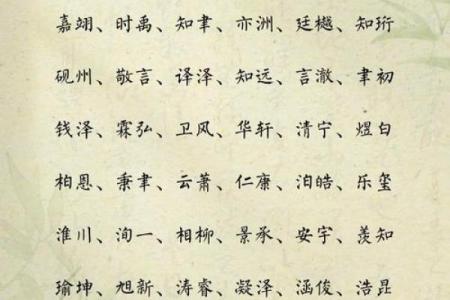 嘉翊、时禹、知聿、亦洲、廷樾、知珩
砚州、敬言、译泽、知远、言澈、聿初
钱泽、霖弘、卫风、华轩、清宁、煜白
柏恩、秉聿、云萧、仁康、洎皓、乐玺
淮川、洵一、相柳、景承、安宇、羡知
瑜坤、旭新、涛睿、凝泽、涵俊、浩昆